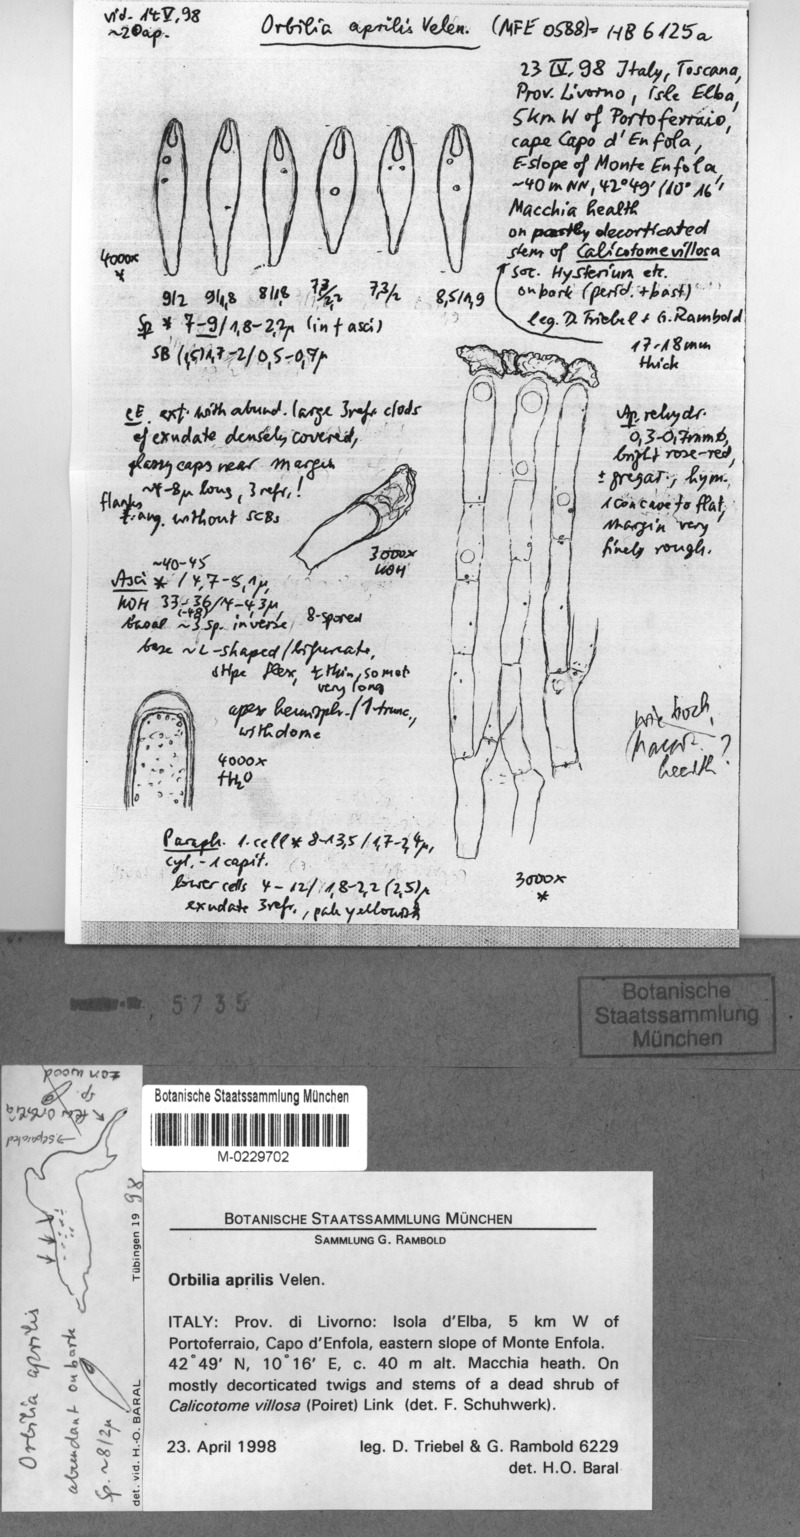 vid. 14 V. 98
~20 ap.
Orbilia aprilis Velen. (MFE 0588) = HB 6125a
23 IV. 98 Italy, Toscana,
Prov. Livorno, Isle Elba,
5km W of Portoferraio,
cape Capo d'Enfola,
E-slope of Monte Enfola,
~40 m NN, 42°49' / 10°16'
Macchia health
on partly decorticated
stem of Calicotome villosa
soc. Hysterium etc.
on bark (perid. + bast)
leg. D. Triebel + G. Rambold
17-18mm
thick
4000x
*
9/2 9/1,8 8/1,8 7,3/2,2 7,3/2 8,5/1,9
Sp * 7-9/1,8-2,2µ (in † asci)
SB (1,5)1,7-2/0,5-0,7µ
eE. ext. with abund. large 3refr. clods
of exudate densely covered,
glassy caps near margin
~4-8µ long, 3 refr.!
flanks
t. ang. without SCBs
3000x
KOH
Ap rehydr.
0,3-0,7mm ø,
bright rose-red,
± gregar., hym.
1 concave to flat,
margin very
finely rough.
~40-45
Asci * / 4,7-5,1µ,
KOH 33-36/4-4,3µ,
(-48)
basal ~3 sp. inverse, 8-spored
base ~L-shaped/bifurcate,
stipe flex, ± thin, somet.
very long
apex hemisph./1-trunc.,
with dome
4000x
†H₂O
Paraph. 1. cell * 8-13,5/1,7-2,4µ,
cyl. - 1 capit.
lower cells 4-12/1,8-2,2 (2,5)µ
exudate 3refr., pale yellowish
3000x
*
heath?
5735
Botanische
Staatssammlung
München
Botanische Staatssammlung München
M-0229702
on wood
sp.
Orbilia
separated
Orbilia aprilis
abundant on bark
Sp. ~8/2µ
det. vid. H.-O. BARAL Tübingen 19 98
BOTANISCHE STAATSSAMMLUNG MÜNCHEN
SAMMLUNG G. RAMBOLD
Orbilia aprilis Velen.
ITALY: Prov. di Livorno: Isola d'Elba, 5 km W of
Portoferraio, Capo d'Enfola, eastern slope of Monte Enfola.
42°49' N, 10°16' E, c. 40 m alt. Macchia heath. On
mostly decorticated twigs and stems of a dead shrub of
Calicotome villosa (Poiret) Link (det. F. Schuhwerk).
23. April 1998 leg. D. Triebel & G. Rambold 6229
det. H.O. Baral